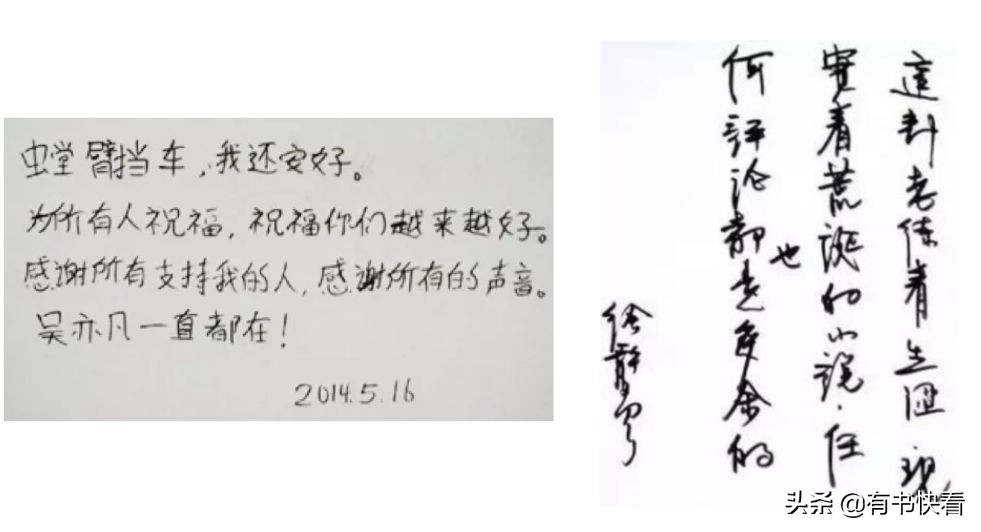 螳臂挡车,我还安好。
为所有人祝福,祝福你们越来越好。
感谢所有支持我的人,感谢所有的声音。
吴亦凡一直都在!
2014.5.16
這 老 生 现
实着荒诞的小说.任
何评论都是多余的
也
徐静蕾
头条 @有书快看